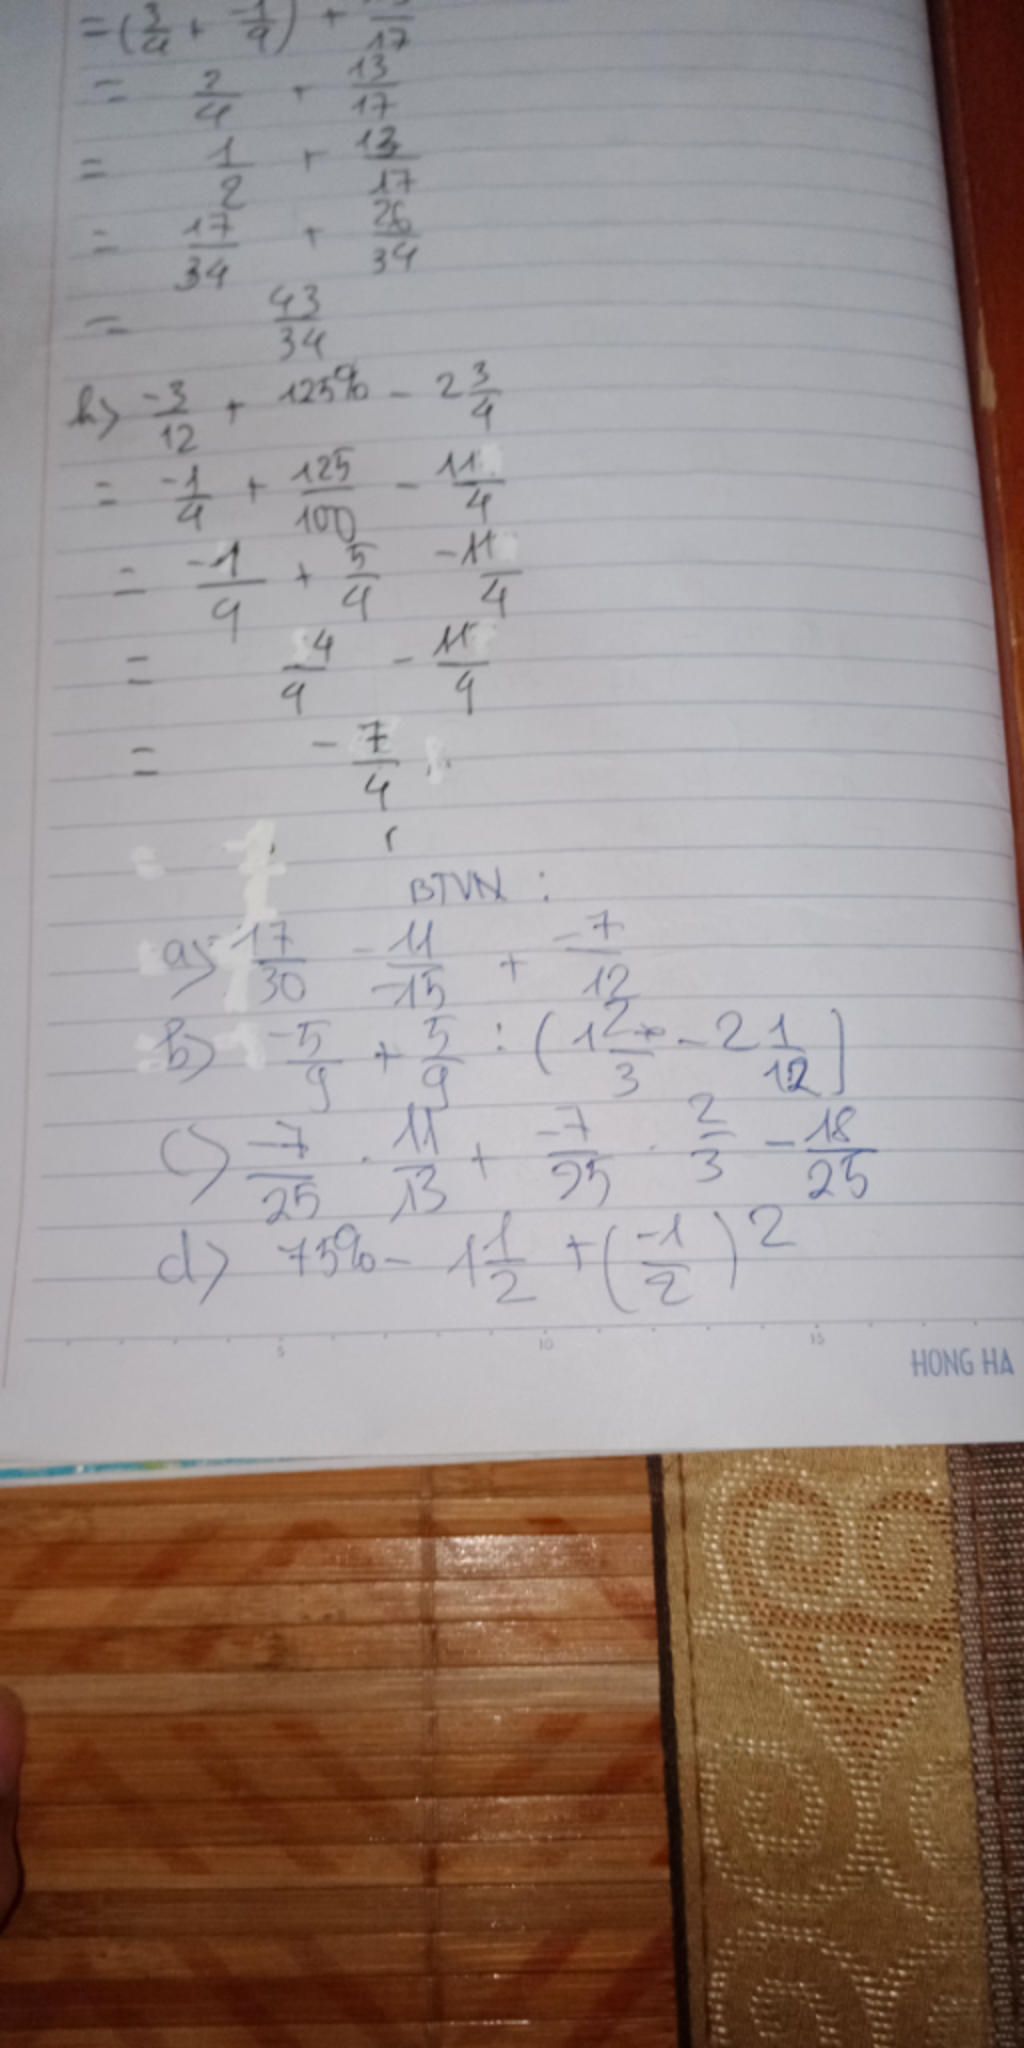 = (3/4 + -1/4) + 13/17
= 2/4 + 13/17
= 1/2 + 13/17
= 17/34 + 26/34
= 43/34
h) -3/12 + 125% - 2 3/4
= -1/4 + 125/100 - 11/4
= -1/4 + 5/4 - 11/4
= 4/4 - 11/4
= -7/4
BTVN :
a) 17/30 - 11/-15 + -7/12
b) -5/9 + 5/9 : (1 2/3 - 2 1/12)
c) -7/25 . 11/13 + -7/25 . 2/3 - 18/25
d) 75% - 1 1/2 + (-1/2)^2
5 10 15
HONG HA